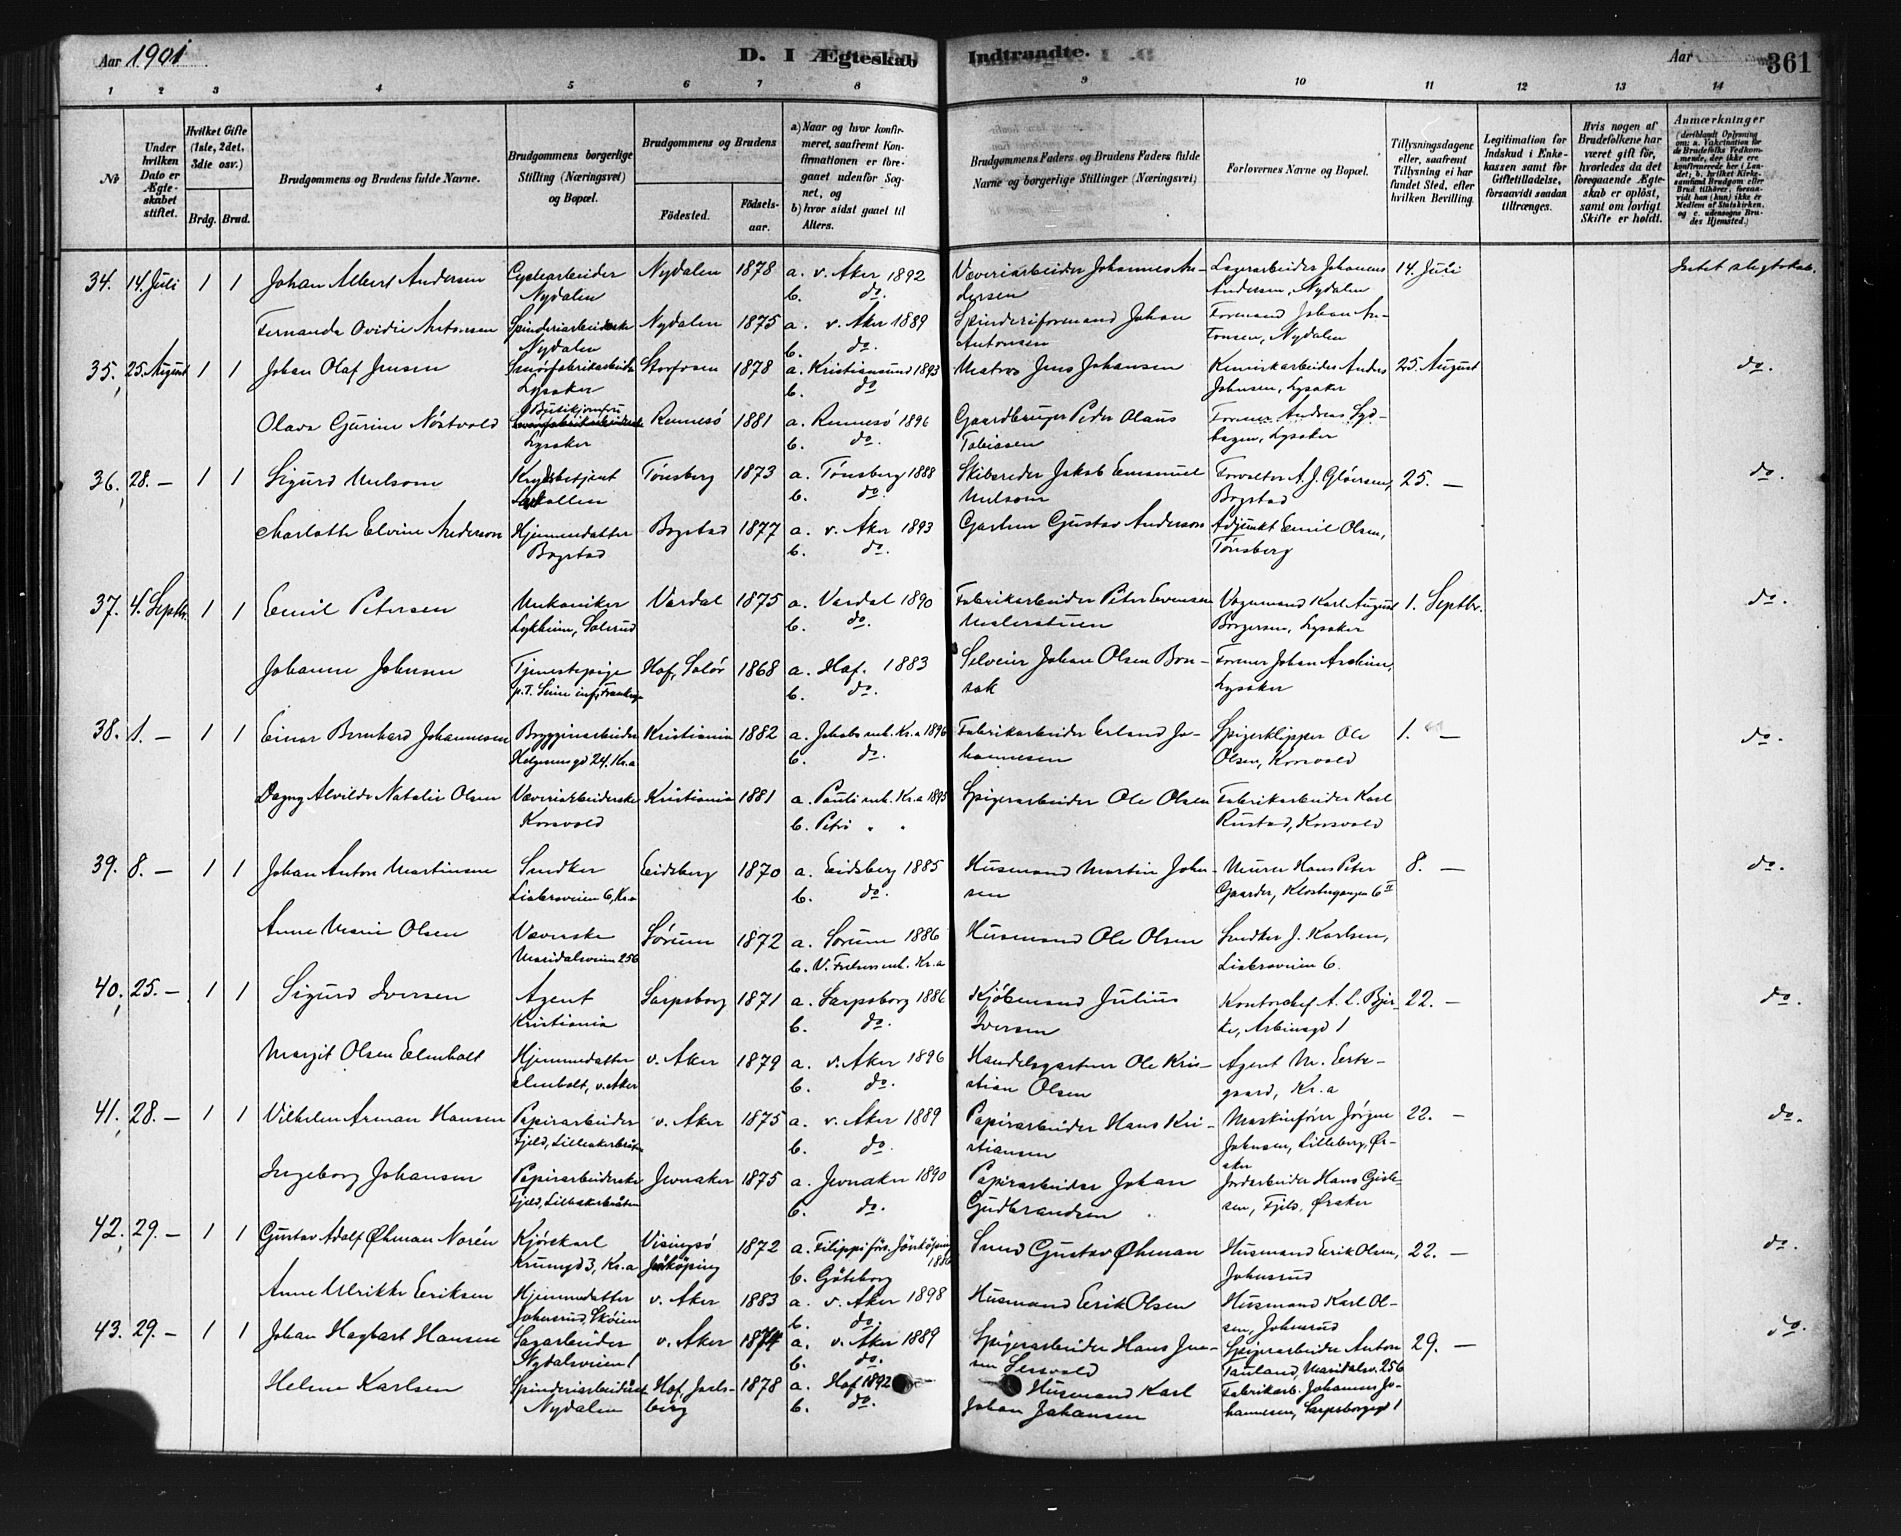 Aar 1901
D. I Ægteskab
Indtraadte.
Aar
361
1 2 3 4 5 6 7 8 9 10 11 12 13 14
№
Under hvilken Dato er Ægteskabet stiftet.
Hvilket Gifte (1ste, 2det, 3die osv.)
Brdg. Brud.
Brudgommens og Brudens fulde Navne.
Brudgommens borgerlige Stilling (Næringsvei) og Bopæl.
Brudgommens og Brudens
Fødested.
Fødselsaar.
a) Naar og hvor konfirmeret, saafremt Konfirmationen er foregaaet udenfor Sognet, og
b) hvor sidst gaaet til Alters.
Brudgommens Faders og Brudens Faders fulde Navne og borgerlige Stillinger (Næringsvei)
Forlovernes Navne og Bopæl.
Tillysningsdagene eller, saafremt Tillysning ei har fundet Sted, efter hvilken Bevilling.
Legitimation for Indskud i Enkekassen samt for Giftetilladelse, forsaavidt saadan tiltrænges.
Hvis nogen af Brudefolkene har været gift før, hvorledes da det foregaaende Ægteskab er opløst, samt om lovligt Skifte er holdt.
Anmærkninger
34. 14. Juli 1 1 Johan Albert Andersen Cyclearbeider Nydalen Nydalen 1878 a. v. Aker 1892 b. do. Væveriarbeider Johannes Andersen Lagerarbeider Johannes Andersen, Nydalen 14. Juli Intet slegtskab.
Fernanda Ovidie Antonsen Spinderiarbeiderske Nydalen Nydalen 1875 a. v. Aker 1889 b. do. Spinderiformand Johan Antonsen Formand Johan Antonsen, Nydalen
35. 25. August 1 1 Johan Olaf Jensen Smørfabrikarbeider Lysaker Storfosen 1878 a. Kristiansund 1893 b. do Matros Jens Johansen Kemiskarbeider Anders Johnsen, Lysaker 25. August do.
Olava Gurine Nøstvold Butikjomfru Lysaker Rennesø 1881 a. Rennesø 1896 b. do. Gaardbruger Peder Olaus Tobiassen Former Andreas Lysaker
36. 28. — 1 1 Sigurd Melsom Tønsberg 1873 a. Tønsberg 1888 b. do. Skibsreder Jakob Emanuel Melsom Forvalter A. J. Gløersen, Bogstad 25. — do
Charlotte Elvine Anderson Hjemmedatter Bogstad Bogstad 1877 a. v. Aker 1893 b. do. Gartner Gustav Anderson Adjunkt Emil Olsen, Tønsberg
37. 4. Septbr. 1 1 Emil Petersen Mekaniker Lykheim, Sollerud Vardal 1875 a. Vardal 1890 b. do. Fabrikarbeider Peter Evensen Vognmand Karl August Borgersen, Lysaker 1. Septbr. do.
Johanne Johnsen Tjenestepige Hof, Solør 1868 a. Hof. 1883 b. do. Selveier Johan Olsen Former Johan Lysaker
38. 1. — 1 1 Einar Bernhard Johannesen Bryggeriarbeider Helgesensgd 24. Kr.a Kristiania 1882 a. Jakobs mh. Kr.a 1896 b. do. Fabrikarbeider Erland Johannesen Spigerklipper Ole Olsen, Korsvold 1. — do.
Dagny Alvilde Natalie Olsen Væveriarbeiderske Korsvold Kristiania 1881 a. Pauli mh. Kr.a 1895 b. Petri " " Spigerarbeider Ole Olsen Fabrikarbeider Karl Rustad, Korsvold
39. 8. — 1 1 Johan Anton Martinsen Snedker Liabroveien 6, Kr.a Eidsberg 1870 a. Eidsberg 1885 b. do. Husmand Martin Johnsen Murer Hans Peter Gaarder, Klostergangen 6 II 8. — do.
Anne Marie Olsen Væverske Maridalsveien 256 Sørum 1872 a. Sørum 1886 b. V. Frelsers mh. Kr.a Husmand Ole Olsen Snedker J. Karlsen, Liabroveien 6.
40. 25. — 1 1 Sigurd Iversen Agent Kristiania Sarpsborg 1871 a. Sarpsborg 1886 b. do. Kjøbmand Julius Iversen Kontorchef A. L. Bjerke, Arbinsgd 1 22. — do.
Margit Olsen Elmholt Hjemmedatter Elmholt, v. Aker v. Aker 1879 a. v. Aker 1896 b. do. Handelsgartner Ole Kristian Olsen Agent M. Kr.a
41. 28. — 1 1 Vilhelm Arman Hansen Papirarbeider Fjeld, Lilleakerbråten v. Aker 1875 a. v. Aker 1889 b. do. Papirarbeider Hans Kristiansen Maskinfører Jørgen Johnsen, Lilleberg, Øraker 22. — do.
Ingeborg Johansen Papirarbeiderske Fjeld, Lilleakerbråten Jevnaker 1875 a. Jevnaker 1890 b. do. Papirarbeider Johan Gudbrandsen Jordarbeider Hans Gislesen, Fjeld, Øraker
42. 29. — 1 1 Gustav Adolf Öhman Norén Kjørekarl Krumgd 3, Kr.a Visingsö Jönköping 1872 a. Filippi förs. Jönköping 1886 b. Göteborg Smed Gustav Öhman Husmand Erik Olsen, Johnsrud 22. — do.
Anne Ulrikke Eriksen Hjemmedatter Johnsrud, Skøien v. Aker 1883 a. v. Aker 1898 b. do. Husmand Erik Olsen Husmand Karl Olsen, Johnsrud
43. 29. — 1 1 Johan Hagbart Hansen Sagarbeider Nydalsveien 1 v. Aker 1874 a. v. Aker 1889 b. do. Spigerarbeider Hans Jensen Spigerarbeider Anton Tauland, Maridalsv. 256 29. — do.
Helene Karlsen Spinderiarbeiderske Nydalen Hof, Jarlsberg 1878 a. Hof 1892 b. do. Husmand Karl Johan Johansen Fabrikarb. Johannes Johannesen, Sarpsborggd 1